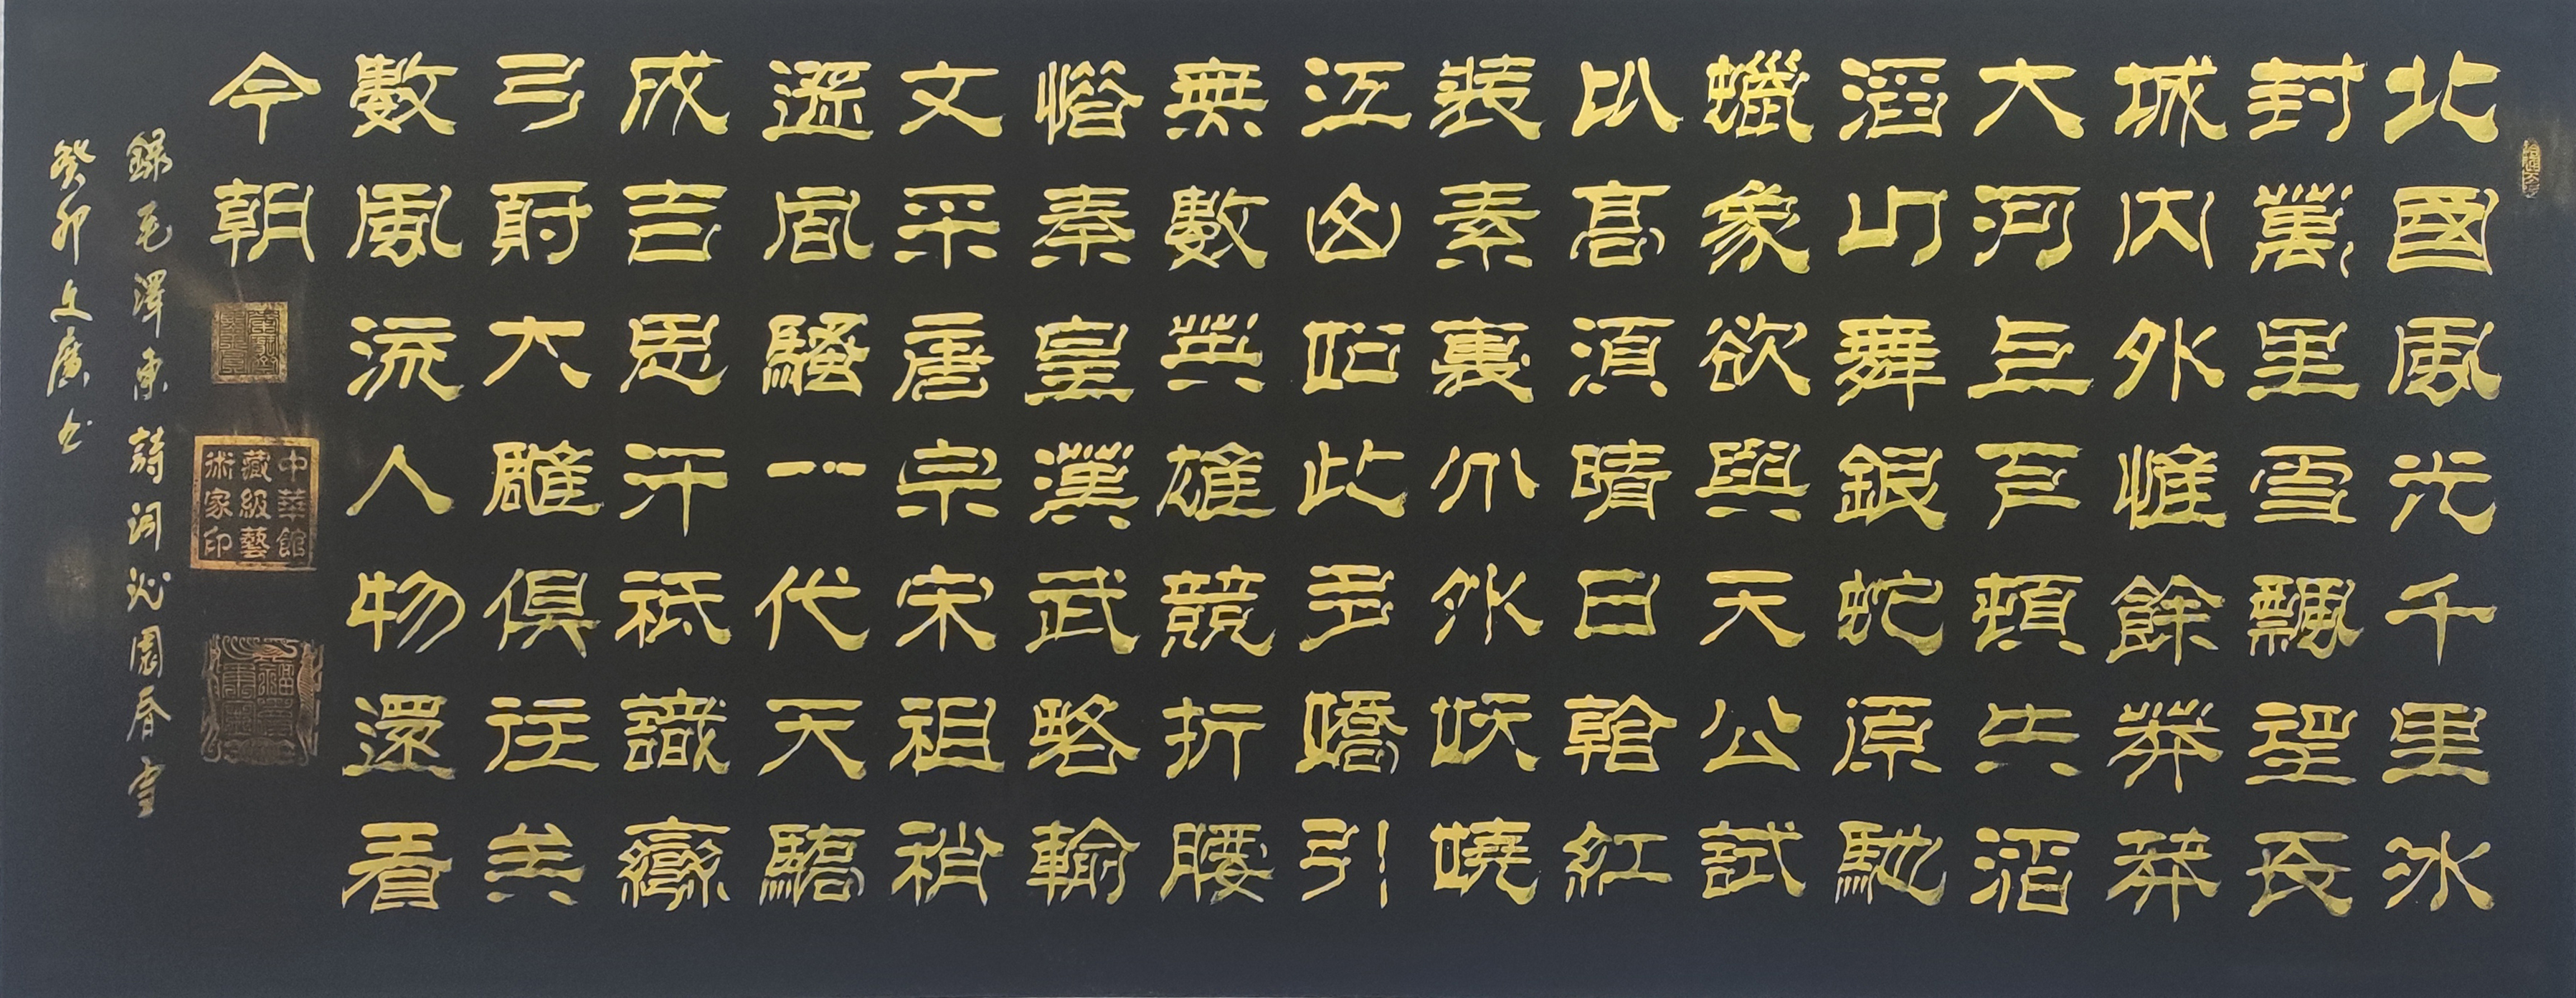 北國風光千里冰
封萬里雪飄望長
城内外惟餘莽莽
大河上下頓失滔
滔山舞銀蛇原馳
蠟象欲與天公試
比高須晴日看紅
裝素裹分外妖嬈
江山如此多嬌引
無數英雄競折腰
惜秦皇漢武略輸
文采唐宗宋祖稍
遜風騷一代天驕
成吉思汗祗識彎
弓射大雕俱往矣
數風流人物還看
今朝
中華館
藏級藝
術家印
錄毛澤東詩詞沁園春雪
癸卯文廣书